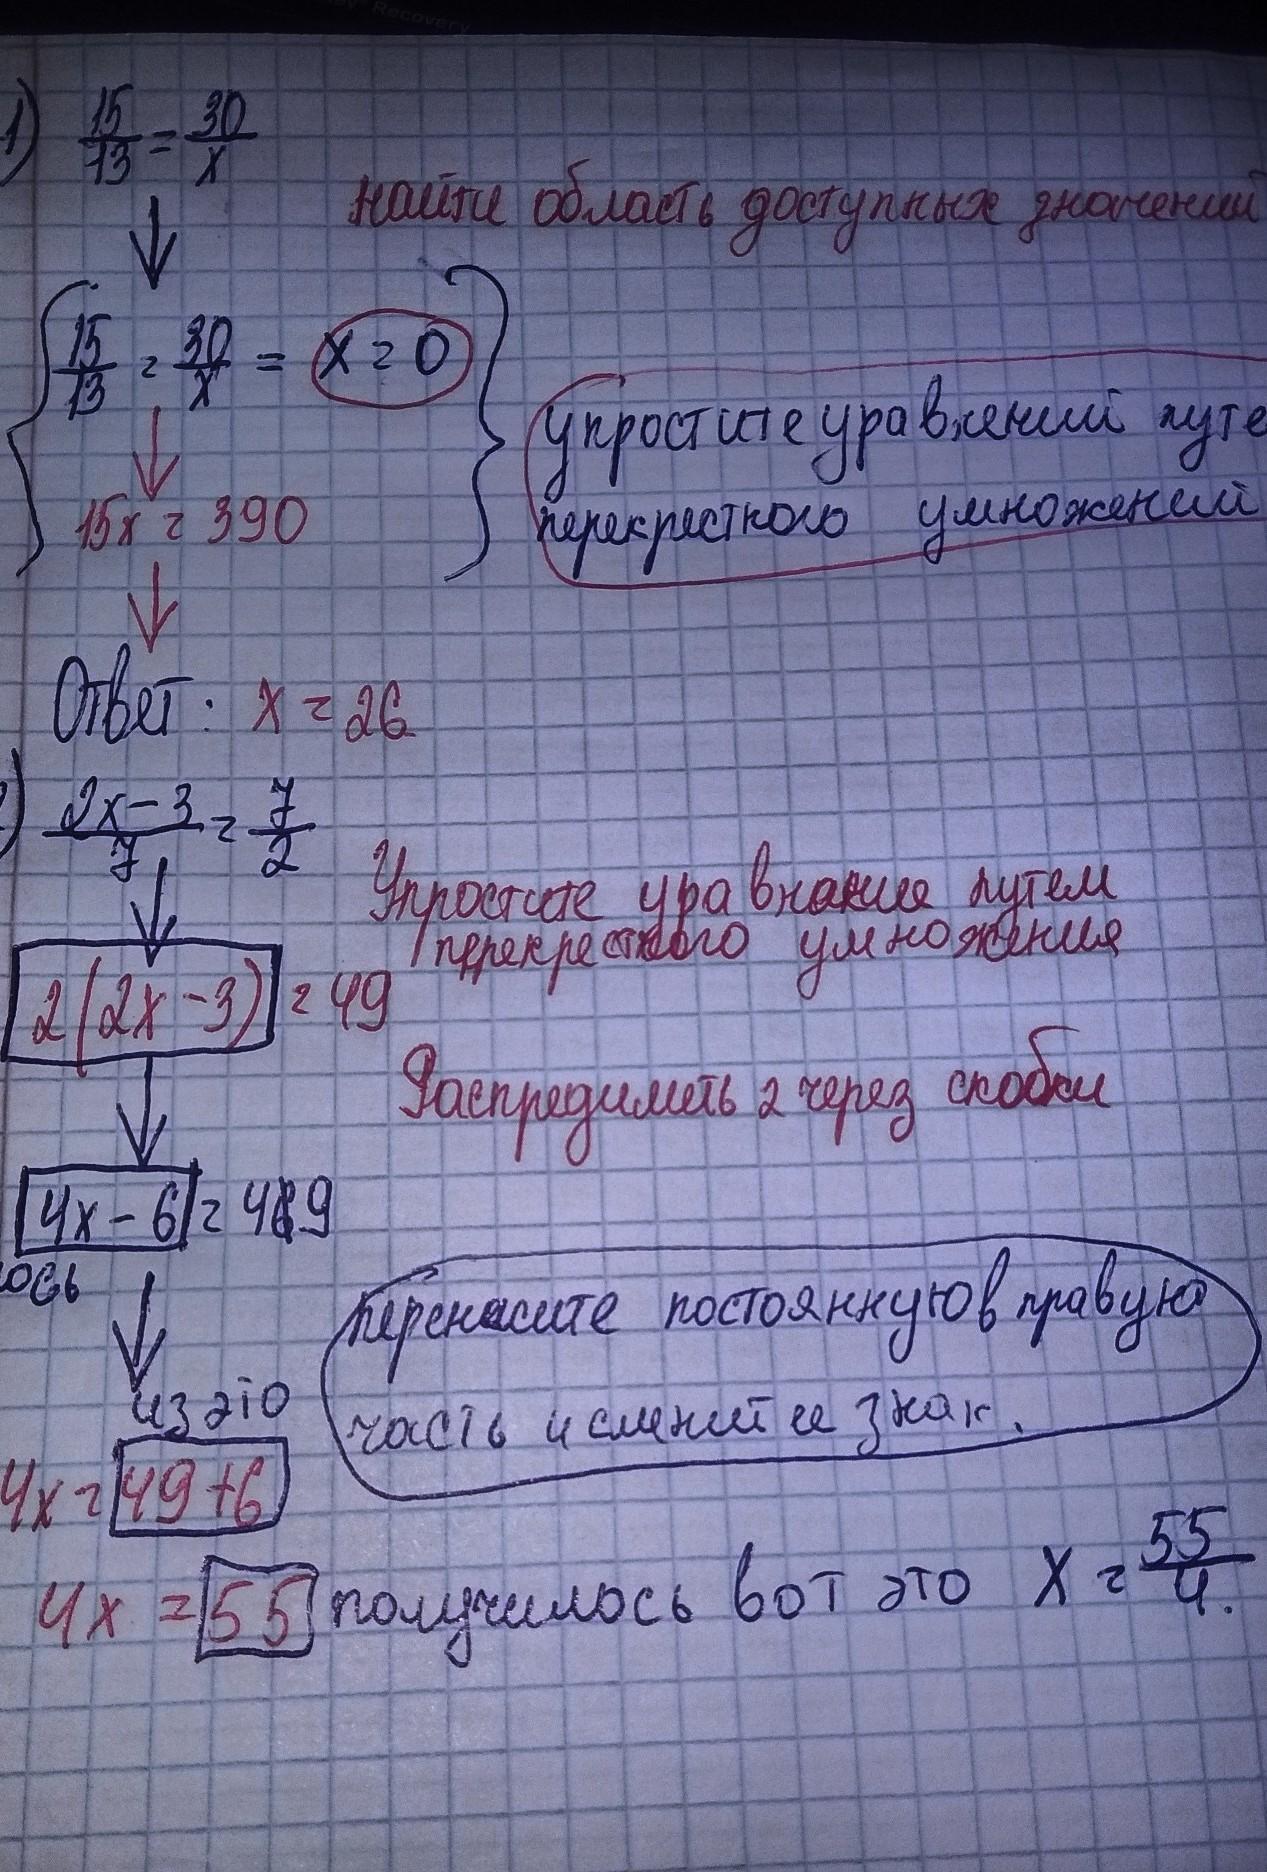 Recovery
1) 15/13 = 30/x
найти область доступных значений
15/13 = 30/x = x = 0
упростите уравнений путе
перекрестного умножений
15x = 390
Ответ: x = 26
2x-3/7 = 7/2
Упростите уравнение путем
перекрестного умножения
2(2x-3) = 49
Распредилеть 2 через скобки
4x-6 = 49
ось
перенасите постоянную в правую
часть и сменит ее знак.
из это
4x = 49+6
4x = 55 получилось вот это x = 55/4.